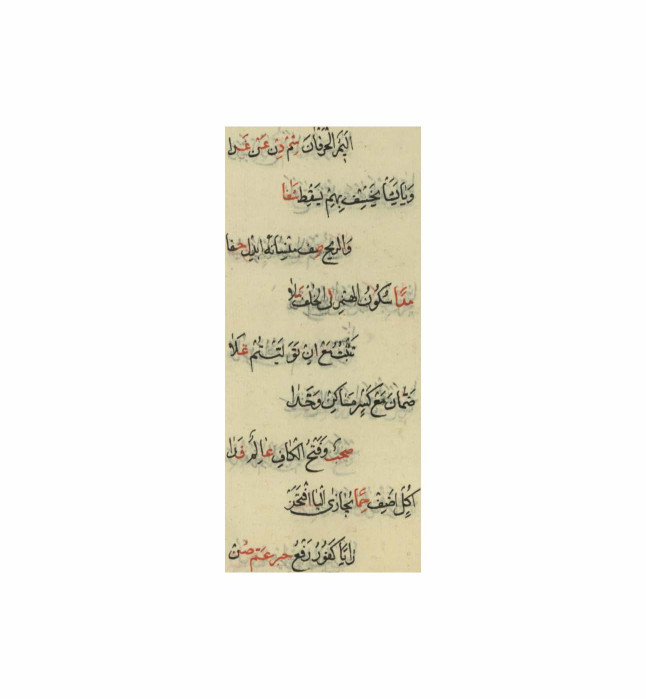 اليم الحرفان شم دن عن غدا
ويا يشا يخسف بهم يسقط شفا
والريح صف منساته ابدل حفا
مدا سكون الهمز لي الخلف ملا
تبينت مع ان توليتم غلا
ضمان مع كسر مساكن وحدا
صحب وفتح الكاف عالم فدا
اكل اضف حما نجازي اليا افتحن
زايا كفور رفع حبر عم صن